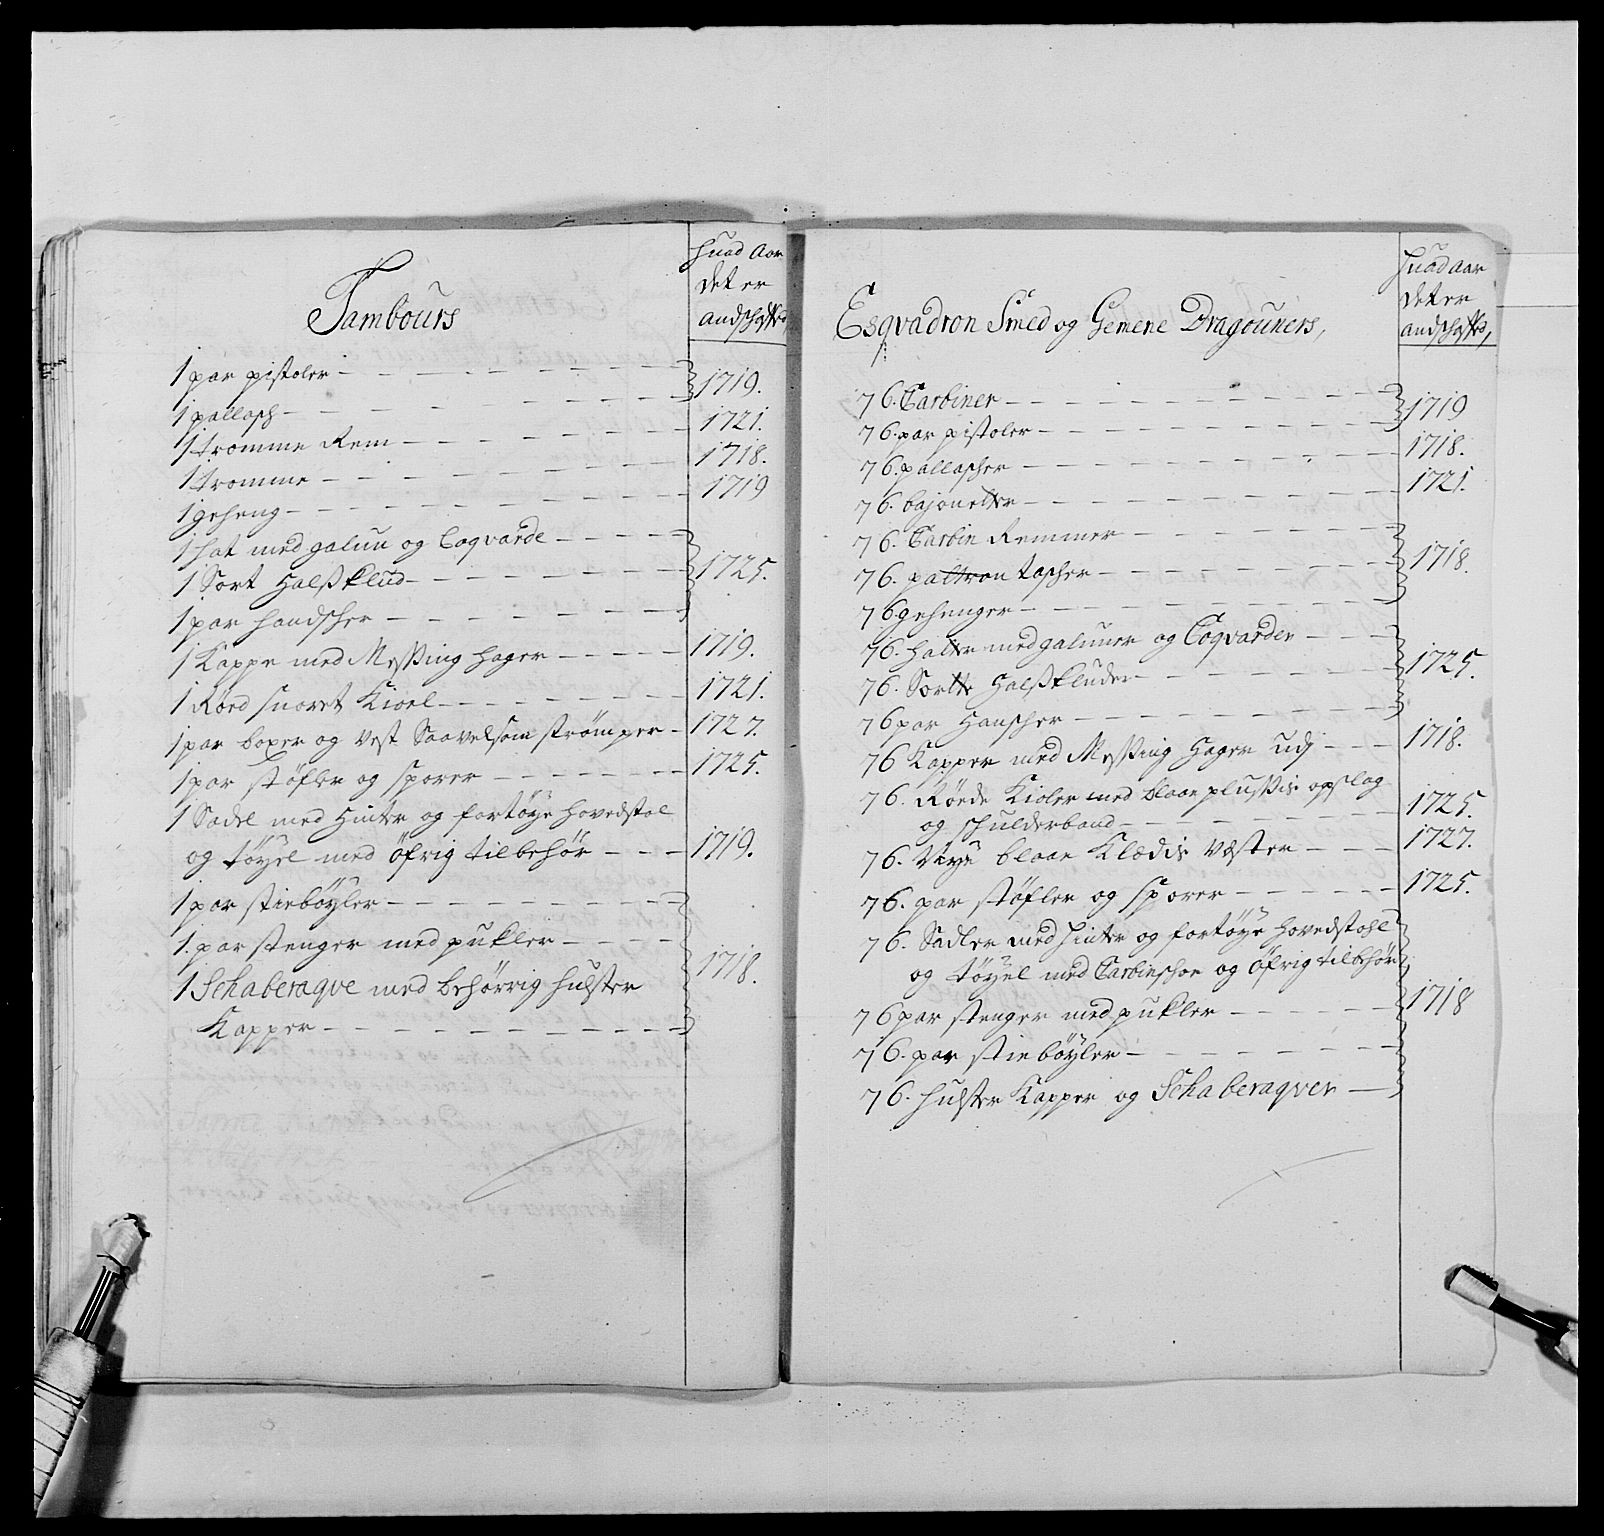 Tambours
huad Aar
det er
andschaffet
1 par pistoler 1719.
1 pallasch
1 tromme Rem 1721.
1 tromme 1718.
1 geheng 1719
1 hat med galun og Coqvarde
1 Sort Halsklud 1725.
1 par handscher
1 Kappe med Messing hager 1719.
1 Røed Kiorl 1721.
1 par boxer og Vest Saavelsom strømper 1727.
1 par støfler og sporer 1725.
1 Sadel med Hinter og fortøye hovedstol
og tøyel med øfrig tilbehør 1719.
1 par stiebøyler
1 par stenger med pukler
1 Schaberaqve med behørrig hulster 1718.
Kapper
Esqvadron Smed og Gemene Dragouners,
huad aar
det er
andschaffet,
76. Carbiner
76. par pistoler 1719
76. pallascher 1718.
76. bajonetter 1721.
76. Carbin Remmer
76. paltron tascher 1718.
76 gehenger
76. hatte med galuner og Coqvarder
76. Sorte Halskluder 1725.
76 par Hanscher
76 Kapper med Messing Hager udj 1718.
76. Røede Kioler med blaae plussis opslag
og schulderband 1725.
76. Nye blaae Klædis Væster 1727.
76. par støfler og sporer 1725.
76. Sadler med hinter og fortøye hovedstohl
og tøyel med Carbinschoe og øfrig tilbehør
76 par stenger med pukler 1718
76. par stiebøyler
76. hulster Kapper og Schaberaqver